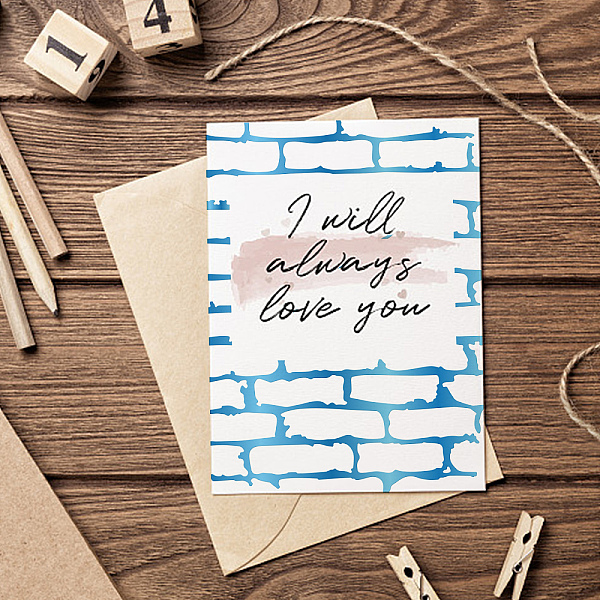 14
I will
always
love you